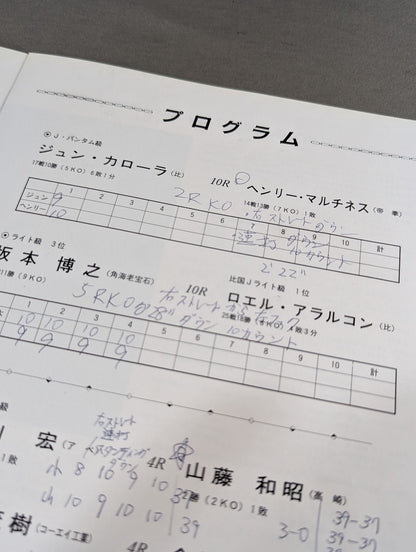 プログラム
⦿ J・バンタム級
ジュン・カローラ(比) 10R ヘンリー・マルチネス(帝拳)
17戦10勝(5KO)6敗1分 2RKO 14戦13勝(7KO)1敗
右ストレート ダウン
1 2 3 4 5 6 7 8 9 10 計
ジュン 9 連打 ダウン
ヘンリー 10 10カウント
2'22"
⦿ ライト級 3位 比国Jライト級 1位
坂本 博之(角海老宝石) 10R ロエル・アラルコン(比)
11勝(9KO) 5RKO 右ストレート から 左フック
28" ダウン 10カウント
1 2 3 4 5 6 7 8 9 10 計
10 10 10 10
9 9 9 9
級
右ストレート
連打
スタンディング
ダウン
宏 4R 山藤 和昭(高崎)
1敗 小 8 10 9 10 37 勝(2KO)1敗 39-37
山 10 9 10 10 39 3-0 39-37
樹(コーエイ工業) 4R